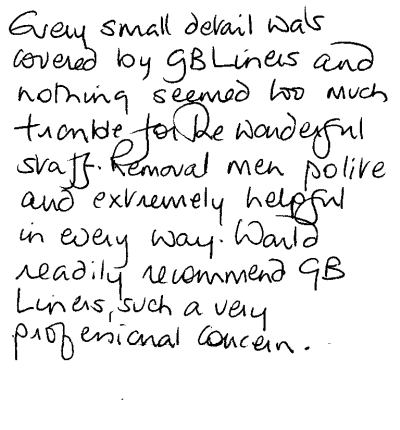 Every small detail was
covered by GB Liners and
nothing seemed too much
trouble for the wonderful
staff. Removal men polite
and extremely helpful
in every way. Would
readily recommend GB
Liners, such a very
professional concern.